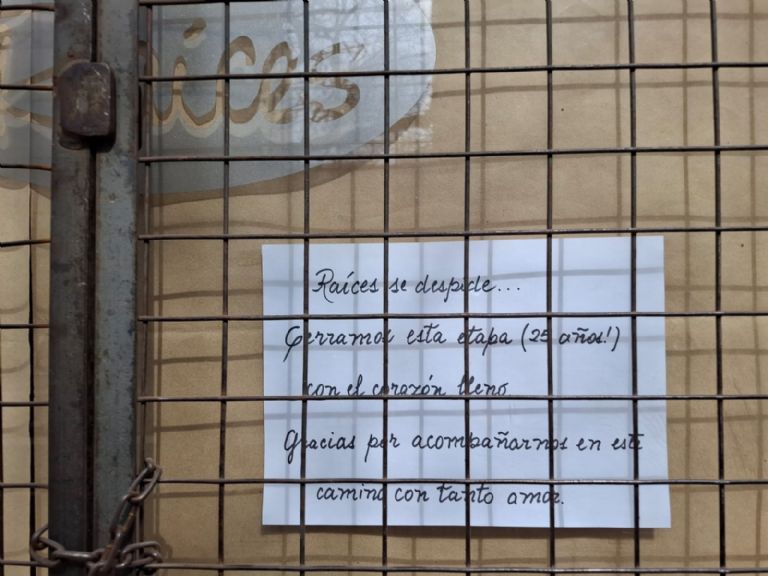 Raíces
Raíces se despide...
Cerramos esta etapa (25 años!)
con el corazón lleno.
Gracias por acompañarnos en este
camino con tanto amor.